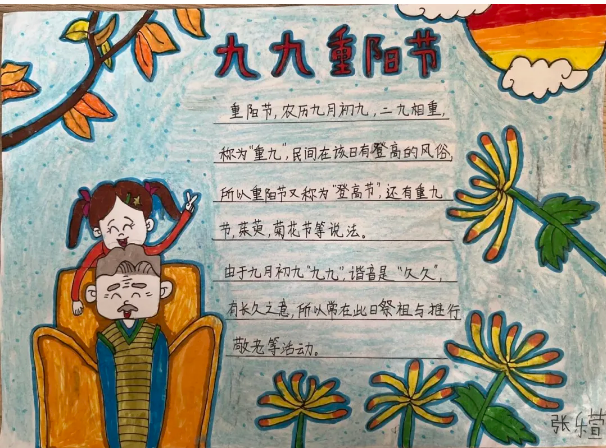 九九重阳节
重阳节,农历九月初九,二九相重,
称为"重九",民间在该日有登高的风俗,
所以重阳节又称为"登高节",还有重九
节,茱萸,菊花节等说法。
由于九月初九"九九",谐音是"久久",
有长久之意,所以常在此日祭祖与推行
敬老等活动。
张乐萱